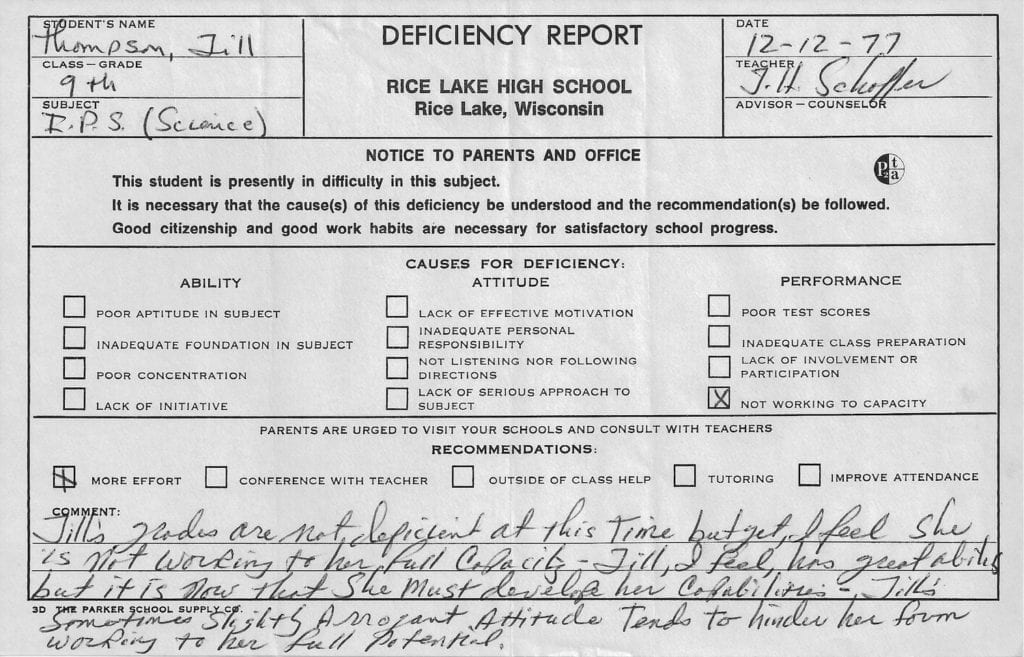 STUDENT'S NAME
Thompson, Jill
CLASS—GRADE
9th
SUBJECT
I.P.S. (Science)
DEFICIENCY REPORT
RICE LAKE HIGH SCHOOL
Rice Lake, Wisconsin
DATE
12-12-77
TEACHER
J.H. Schoffer
ADVISOR—COUNSELOR
NOTICE TO PARENTS AND OFFICE
P2ta
This student is presently in difficulty in this subject.
It is necessary that the cause(s) of this deficiency be understood and the recommendation(s) be followed.
Good citizenship and good work habits are necessary for satisfactory school progress.
CAUSES FOR DEFICIENCY:
ABILITY
POOR APTITUDE IN SUBJECT
INADEQUATE FOUNDATION IN SUBJECT
POOR CONCENTRATION
LACK OF INITIATIVE
ATTITUDE
LACK OF EFFECTIVE MOTIVATION
INADEQUATE PERSONAL
RESPONSIBILITY
NOT LISTENING NOR FOLLOWING
DIRECTIONS
LACK OF SERIOUS APPROACH TO
SUBJECT
PERFORMANCE
POOR TEST SCORES
INADEQUATE CLASS PREPARATION
LACK OF INVOLVEMENT OR
PARTICIPATION
X NOT WORKING TO CAPACITY
PARENTS ARE URGED TO VISIT YOUR SCHOOLS AND CONSULT WITH TEACHERS
RECOMMENDATIONS:
MORE EFFORT CONFERENCE WITH TEACHER OUTSIDE OF CLASS HELP TUTORING IMPROVE ATTENDANCE
COMMENT:
Jill's grades are not deficient at this Time but yet, I feel She
is not working to her full Capacity - Jill, I feel, has great ability
but it is Now that She Must develop her Capabilities - Jill's
3D THE PARKER SCHOOL SUPPLY CO.
Sometimes Slightly Arrogant Attitude Tends to hinder her form
working to her full Potential.